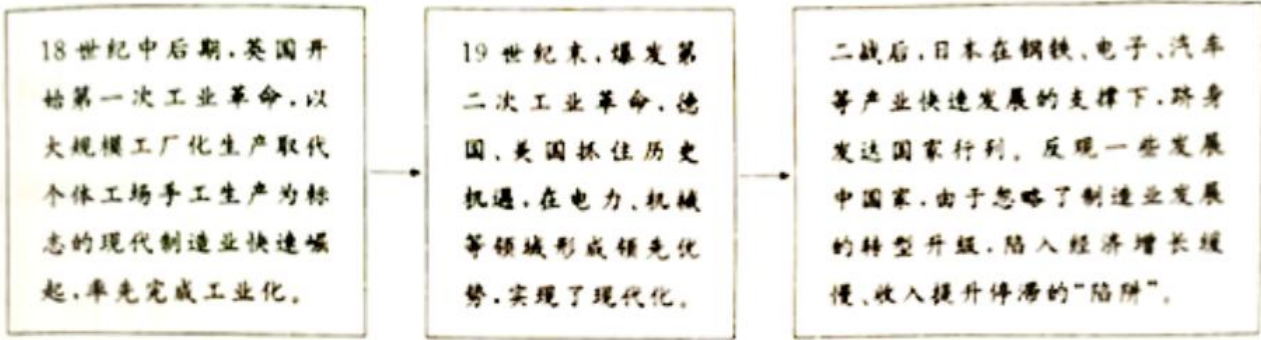 18世纪中后期，英国开
始第一次工业革命，以
大规模工厂化生产取代
个体工场手工生产为标
志的现代制造业快速崛
起，率先完成工业化。
19世纪末，爆发第
二次工业革命，德
国、美国抓住历史
机遇，在电力、机械
等领域形成领先优
势，实现了现代化。
二战后，日本在钢铁、电子、汽车
等产业快速发展的支撑下，跻身
发达国家行列。反观一些发展
中国家，由于忽略了制造业发展
的转型升级，陷入经济增长缓
慢、收入提升停滞的“陷阱”。